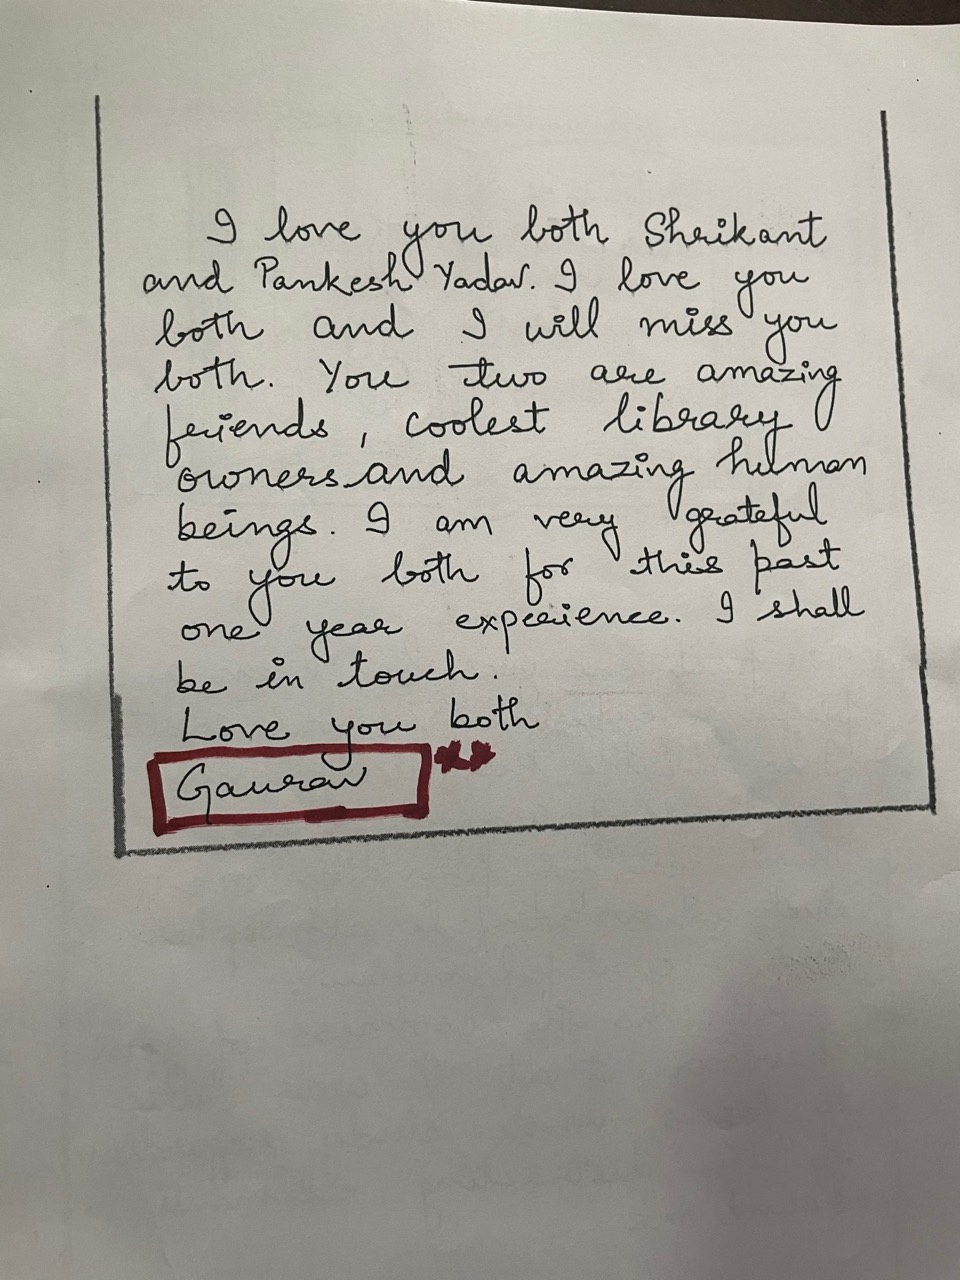 I love you both Shrikant
and Pankesh Yadav. I love you
both and I will miss you
both. You two are amazing
friends, coolest library
owners and amazing human
beings. I am very grateful
to you both for this past
one year experience. I shall
be in touch.
Love you both
Gaurav